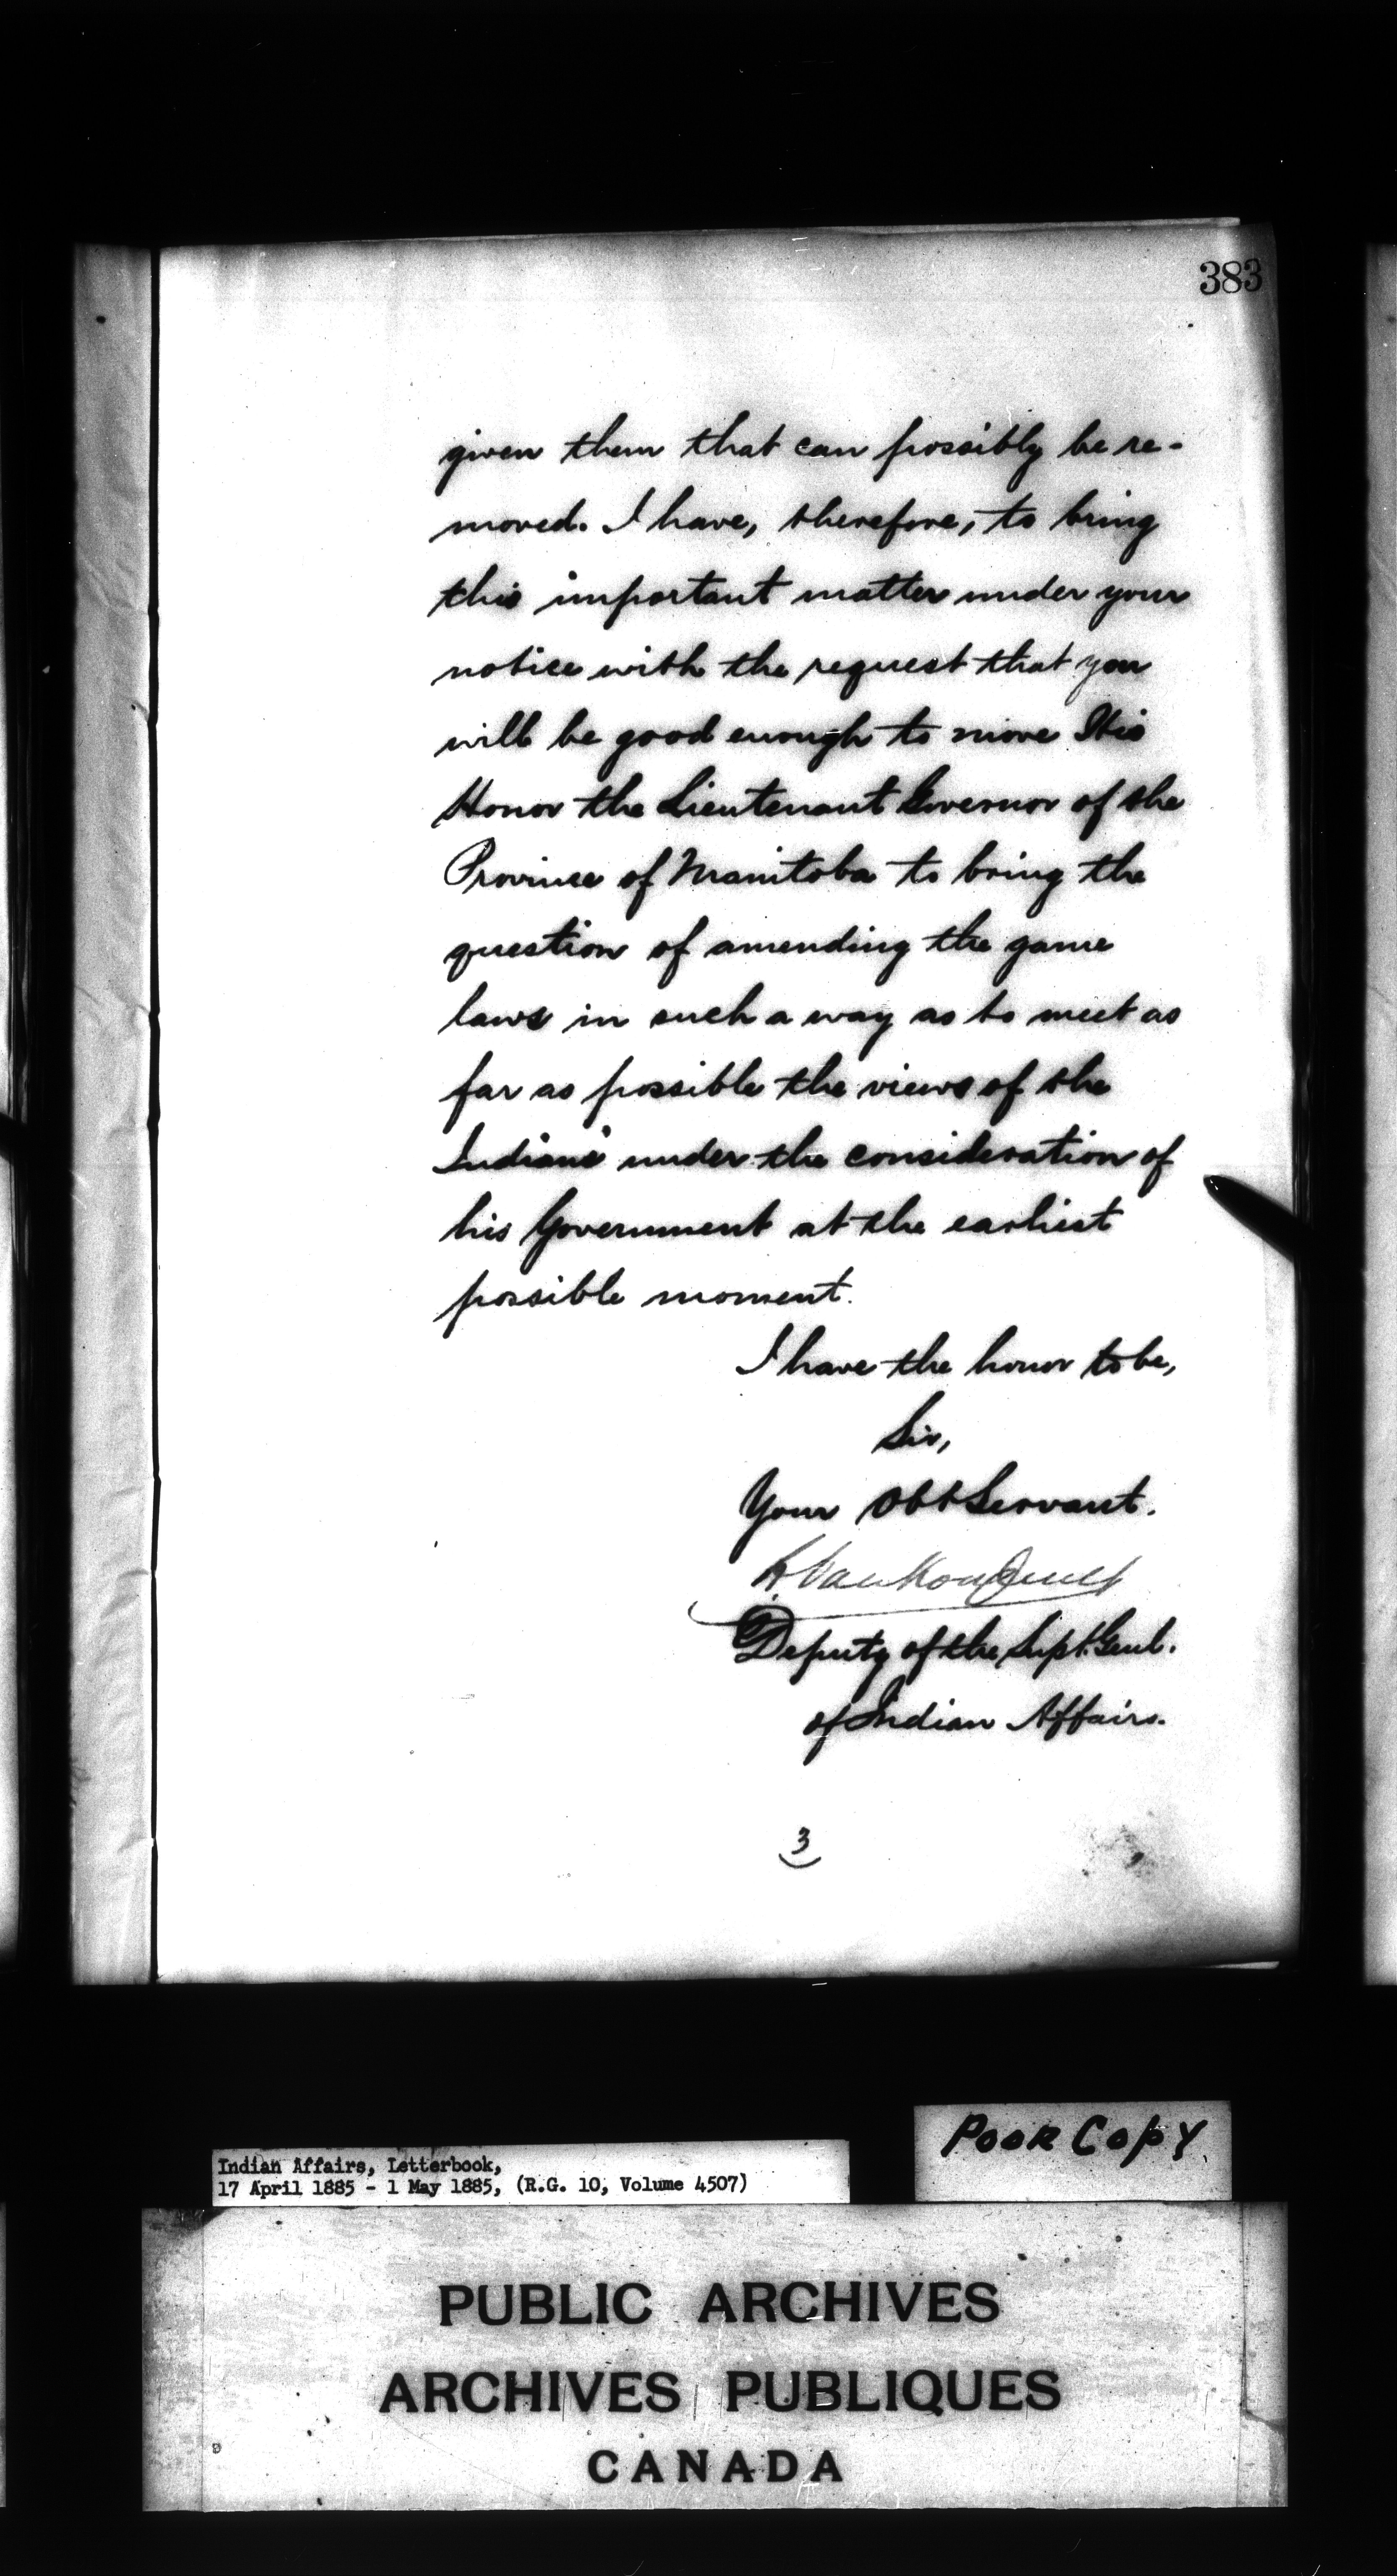 383
given them that can possibly be re-
moved. I have, therefore, to bring
this important matter under your
notice with the request that you
will be good enough to move His
Honor the Lieutenant Governor of the
Province of Manitoba to bring the
question of amending the game
laws in such a way as to meet as
far as possible the views of the
Indians under the consideration of
his Government at the earliest
possible moment.
I have the honor to be,
Sir,
Your Obt Servant.
L. VanKoughnet
Deputy of the Supt. Genl.
of Indian Affairs.
3
Poor Copy
Indian Affairs, Letterbook,
17 April 1885 - 1 May 1885, (R.G. 10, Volume 4507)
PUBLIC ARCHIVES
ARCHIVES PUBLIQUES
CANADA